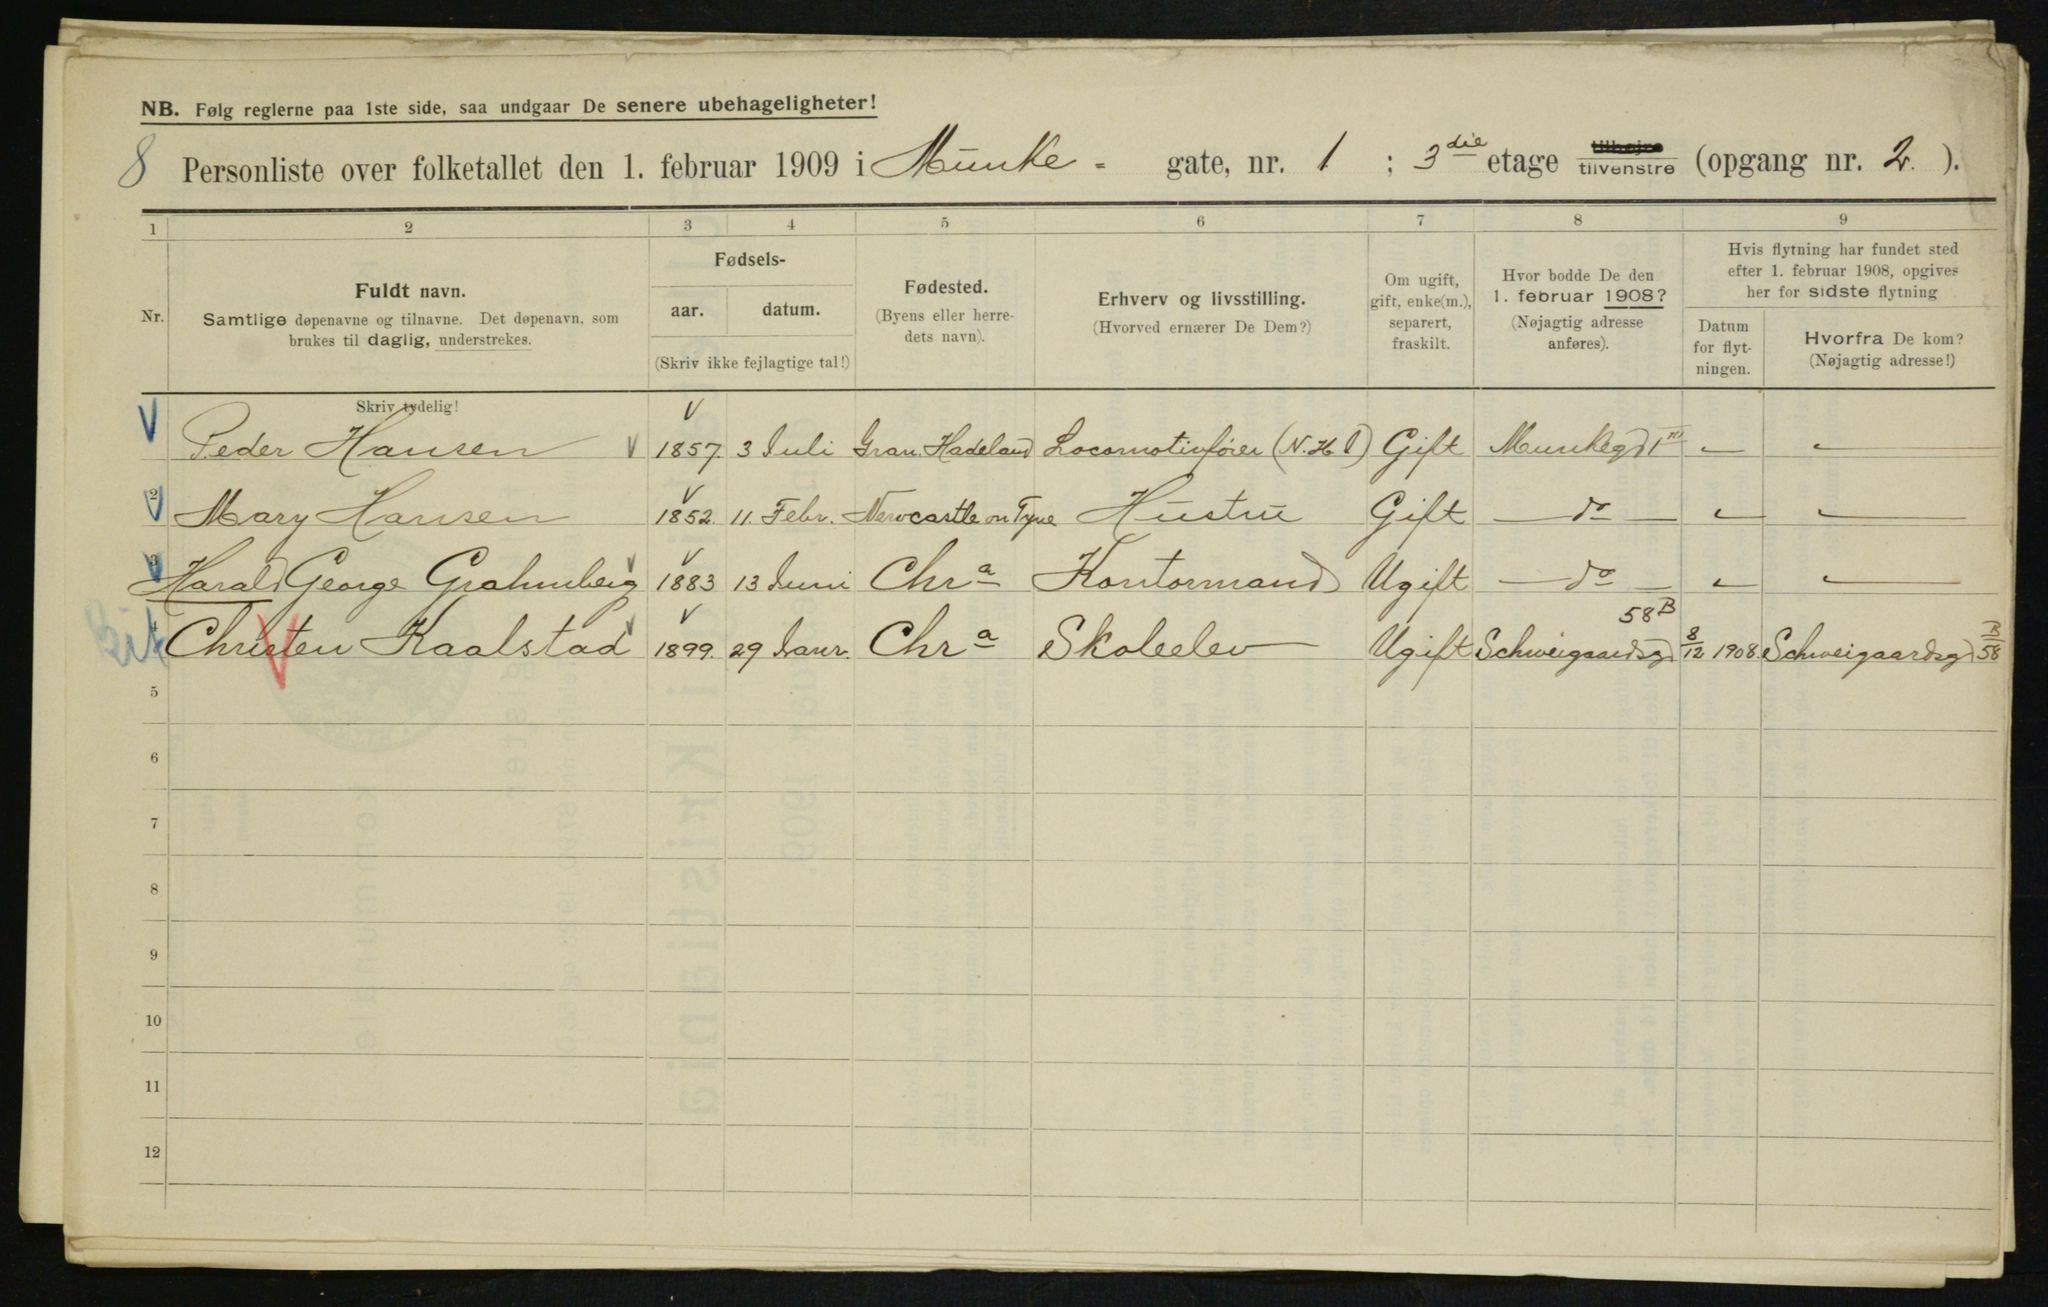 NB. Følg reglerne paa 1ste side, saa undgaar De senere ubehageligheter!
8 Personliste over folketallet den 1. februar 1909 i Munke - gate, nr. 1 ; 3die etage tilhøjre tilvenstre (opgang nr. 2. ).
1 2 3 4 5 6 7 8 9
Nr.
Fuldt navn.
Samtlige døpenavne og tilnavne. Det døpenavn, som
brukes til daglig, understrekes.
Skriv tydelig!
Fødsels-
aar. datum.
(Skriv ikke fejlagtige tal!)
Fødested.
(Byens eller herre-
dets navn).
Erhverv og livsstilling.
(Hvorved ernærer De Dem?)
Om ugift,
gift, enke(m.),
separert,
fraskilt.
Hvor bodde De den
1. februar 1908?
(Nøjagtig adresse
anføres).
Hvis flytning har fundet sted
efter 1. februar 1908, opgives
her for sidste flytning
Datum
for flyt-
ningen.
Hvorfra De kom?
(Nøjagtig adresse!)
Peder Hansen 1857. 3 Juli Gran. Hadeland Locomotivfører (N. H. ) Gift Munkegd 1 III
2 Mary Hansen 1852. 11. Febr. Newcastle on Tyne Hustru Gift — do —
3 Harald George Grahmberg 1883 13 Juni Chra Kontormand Ugift — do —
4 Christen Kaalstad 1899. 29 Janr. Chra Skoleelev Ugift Schweigaardsgd 58B 8/12 1908. Schweigaardsgd B/58
5
6
7
8
9
10
11
12